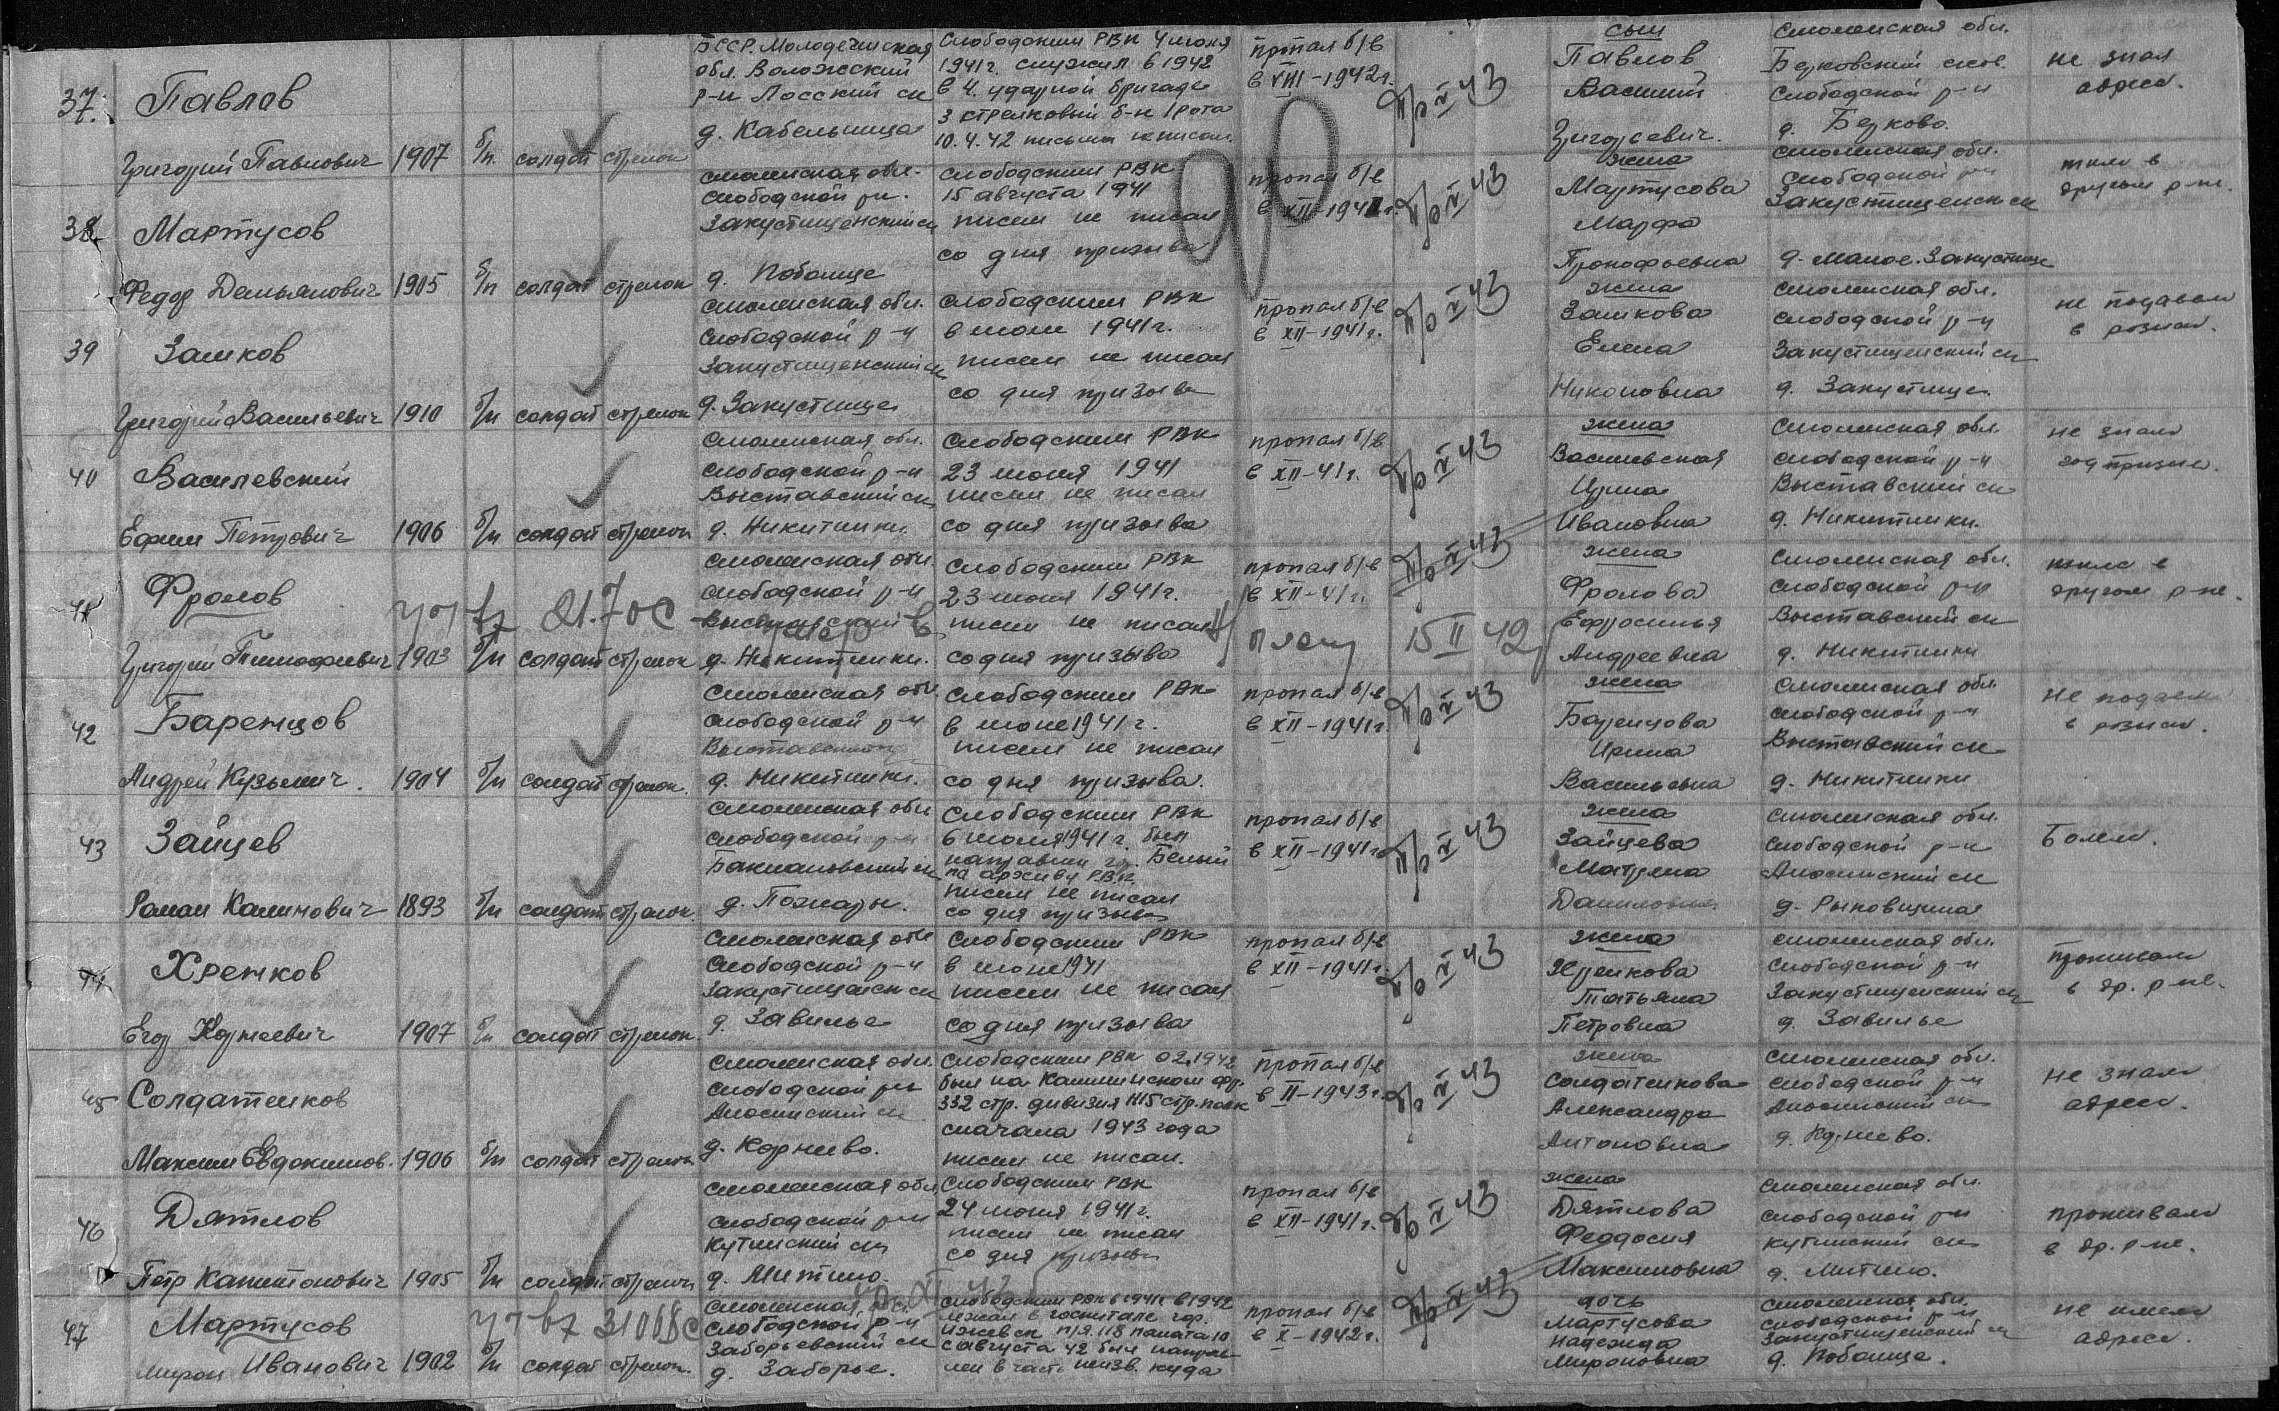 37.
Павлов
Григорий Павлович
1907
б/п
солдат
стрелок
БССР. Молодечнская
обл. Воложский
р-н Лосский с/с
д. Кабельница
Слободским РВК 4 июня
1941г. служил в 1942
в 4. ударной бригаде
3 стрелковый б-н 1 рота
10.4.42 письма не писал.
пропал б/в
в VIII-1942г.
п/п X 43
сын
Павлов
Василий
Григорьевич.
Смоленская обл.
Слободской р-н
д. Бедково.
не знал
адреса.
38
Мартусов
Федор Демьянович
1905
б/п
солдат
стрелок
Смоленская обл.
Слободской р-н.
Закустищенский с/с
д. Побоище
Слободским РВК
15 августа 1941
писем не писал
со дня призыва
пропал б/в
в XII-1941г.
43
жена
Мартусова
Марфа
Прокофьевна
Смоленская обл.
Слободской р-н
Закустищенск с/с
д. Малое. Закустище
жили в
другом р-не.
39
Зайков
Григорий Васильевич
1910
б/п
солдат
стрелок
Смоленская обл.
Слободской р-н
Закустищенский с/с
д. Закустище
Слободским РВК
в июле 1941г.
писем не писал
со дня призыва
пропал б/в
в XII-1941г.
43
жена
Зайкова
Елена
Никоновна
Смоленская обл.
Слободской р-н
Закустищенский с/с
д. Закустище
не подавал
в розыск.
40
Василевский
Ефим Петрович
1906
б/п
солдат
стрелок
Смоленская обл.
Слободской р-н
Выставский с/с
д. Никитинки.
Слободским РВК
23 июня 1941
писем не писал
со дня призыва
пропал б/в
в XII-41г.
43
жена
Василевская
Ирина
Ивановна
Смоленская обл.
Слободской р-н
Выставский с/с
д. Никитинки.
не знал
41
Фролов
Григорий Тимофеевич
1903
б/п
солдат
стрелок
Смоленская обл.
Слободской р-н
Выставский
д. Никитинки.
Слободским РВК
23 июня 1941г.
писем не писал
со дня призыва
пропал б/в
в XII-41г.
15 II 42
43
жена
Фролова
Ефросинья
Андреевна
Смоленская обл.
Слободской р-н
Выставский с/с
д. Никитинки
жила в
другом р-не.
42
Баренцов
Андрей Кузьмич.
1904
б/п
солдат
стрелок.
Смоленская обл.
Слободской р-н
Выставский
д. Никитинки.
Слободским РВК
в июне 1941г.
писем не писал
со дня призыва.
пропал б/в
в XII-1941г.
43
жена
Баренцова
Ирина
Васильевна
Смоленская обл.
Слободской р-н
Выставский с/с
д. Никитинки
Не подавал
в розыск.
43
Зайцев
Роман Калинович
1893
б/п
солдат
стрелок.
Смоленская обл.
Слободской р-н
Баклановский с/с
д. Пожары.
Слободским РВК
6 июля 1941г. был
направлен гор. Белый
по архиву РВК
писем не писал
со дня призыва
пропал б/в
в XII-1941г.
43
жена
Зайцева
Матрена
Даниловна
Смоленская обл.
Слободской р-н
Аносинский с/с
д. Рыковщина
Болел.
44
Хренков
Егор Корнеевич
1907
б/п
солдат
стрелок.
Смоленская обл.
Слободской р-н
Закустищенск с/с
д. Завилье
Слободским РВК
в июне 1941
писем не писал
со дня призыва
пропал б/в
в XII-1941г.
43
жена
Хренкова
Татьяна
Петровна
Смоленская обл.
Слободской р-н
Закустищенский с/с
д. Завилье
проживал
в др. р-не.
45
Солдатенков
Максим Евдокимов.
1906
б/п
солдат
стрелок
Смоленская обл.
Слободской р-н
Аносинский с/с
д. Корнево.
Слободским РВК 02.1942
был на Калининском фр.
332 стр. дивизия 1115 стр. полк
сначала 1943 года
писем не писал.
пропал б/в
в II-1943г.
43
жена
Солдатенкова
Александра
Антоновна
Смоленская обл.
Слободской р-н
Аносинский с/с
д. Корнево.
Не знал
адреса.
46
Дятлов
Петр Капитонович
1905
б/п
солдат
стрелок
Смоленская обл.
Слободской р-н
Кутинский с/с
д. Митино.
Слободским РВК
24 июня 1941г.
писем не писал
со дня призыва
пропал б/в
в XII-1941г.
43
жена
Дятлова
Феодосия
Максимовна
Смоленская обл.
Слободской р-н
Кутинский с/с
д. Митино.
проживал
в др. р-не.
47
Мартусов
Мирон Иванович
1902
б/п
солдат
стрелок.
Смоленская
Слободской р-н
Заборьевский с/с
д. Заборье.
Слободским РВК в 1941г. в 1942
лежал в госпитале гор.
Ижевск п/я. 118 палата 10
с августа 42 был направ-
лен в часть неизв. куда
пропал б/в
в X-1942г.
43
дочь
Мартусова
Надежда
Мироновна
Смоленская обл.
Слободской р-н
Закустищенский с/с
д. Побоище.
не имел
адреса.